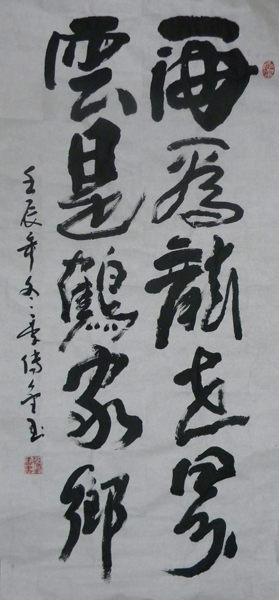 海為龍世界
雲是鶴家鄉
壬辰年冬